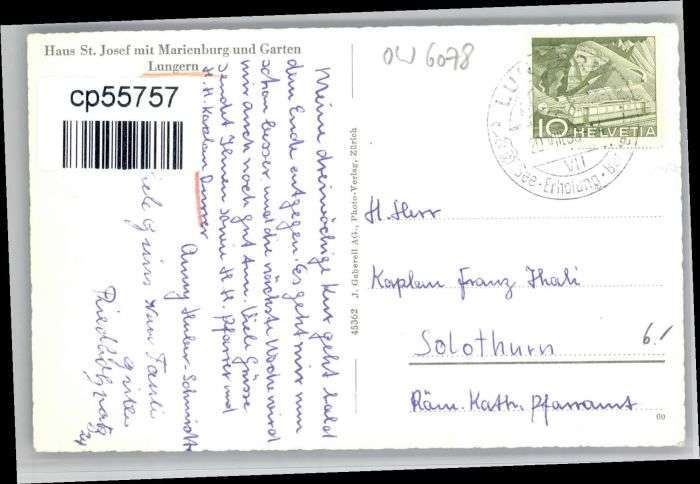 Haus St. Josef mit Marienburg und Garten
Lungern
cp55757
OW 6078
10 HELVETIA
LU
VII
See-Erholung
Meine dreiwöchige Kur geht bald
dem Ende entgegen. Es geht mir nun
schon besser und die nächste Woche wird
mir auch noch gut tun. Viele Grüsse
sendet Ihnen sowie H. H. Pfarrer und
H. H. Kaplan
Anny Schmidt
Viele Grüsse
45362 J. Gaberell AG., Photo-Verlag, Zürich
H. Herr
Kaplan Franz Thali
Solothurn
6.-
Röm. Kath. Pfarramt
00